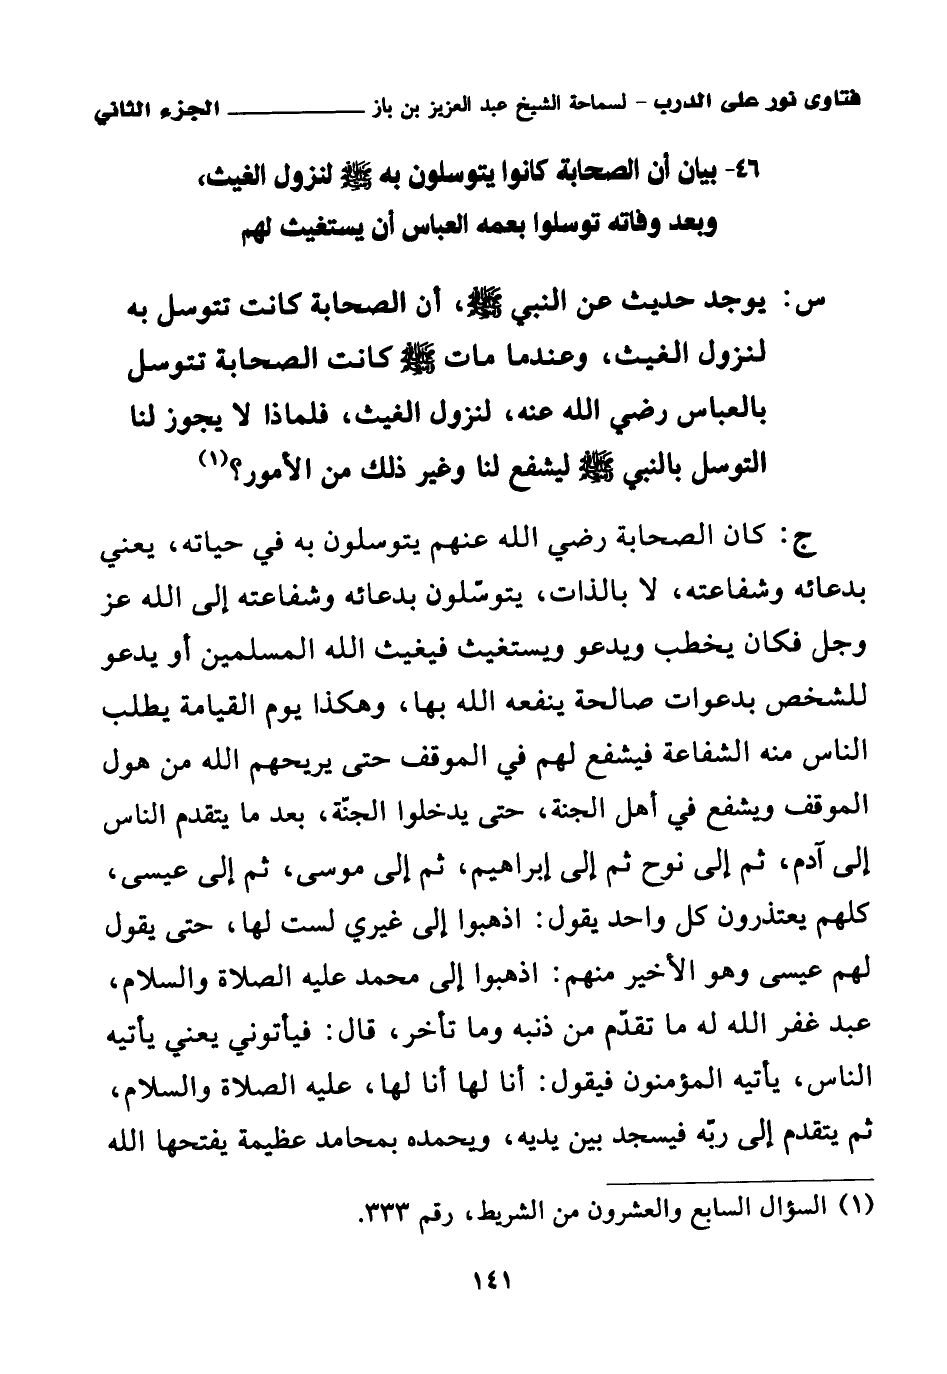 فتاوى نور على الدرب - لسماحة الشيخ عبد العزيز بن باز ـــــــــ الجزء الثاني
٤٦- بيان أن الصحابة كانوا يتوسلون به ﷺ لنزول الغيث،
وبعد وفاته توسلوا بعمه العباس أن يستغيث لهم
س: يوجد حديث عن النبي ﷺ، أن الصحابة كانت تتوسل به
لنزول الغيث، وعندما مات ﷺ كانت الصحابة تتوسل
بالعباس رضي الله عنه، لنزول الغيث، فلماذا لا يجوز لنا
التوسل بالنبي ﷺ ليشفع لنا وغير ذلك من الأمور؟(١)
ج: كان الصحابة رضي الله عنهم يتوسلون به في حياته، يعني
بدعائه وشفاعته، لا بالذات، يتوسّلون بدعائه وشفاعته إلى الله عز
وجل فكان يخطب ويدعو ويستغيث فيغيث الله المسلمين أو يدعو
للشخص بدعوات صالحة ينفعه الله بها، وهكذا يوم القيامة يطلب
الناس منه الشفاعة فيشفع لهم في الموقف حتى يريحهم الله من هول
الموقف ويشفع في أهل الجنة، حتى يدخلوا الجنّة، بعد ما يتقدم الناس
إلى آدم، ثم إلى نوح ثم إلى إبراهيم، ثم إلى موسى، ثم إلى عيسى،
كلهم يعتذرون كل واحد يقول: اذهبوا إلى غيري لست لها، حتى يقول
لهم عيسى وهو الأخير منهم: اذهبوا إلى محمد عليه الصلاة والسلام،
عبد غفر الله له ما تقدّم من ذنبه وما تأخر، قال: فيأتوني يعني يأتيه
الناس، يأتيه المؤمنون فيقول: أنا لها أنا لها، عليه الصلاة والسلام،
ثم يتقدم إلى ربّه فيسجد بين يديه، ويحمده بمحامد عظيمة يفتحها الله
(١) السؤال السابع والعشرون من الشريط، رقم ٣٣٣.
١٤١